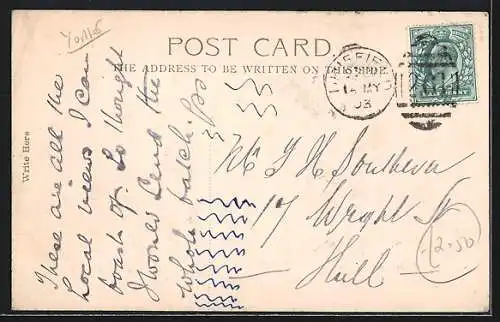 Yorks
POST CARD.
THE ADDRESS TO BE WRITTEN ON THIS SIDE.
Write Here
These are all the
Local views I can
boast of. So thought
I would send the
whole batch.
14 MY
03
Mr T H Southern
17 Wright St
Hull
12.50